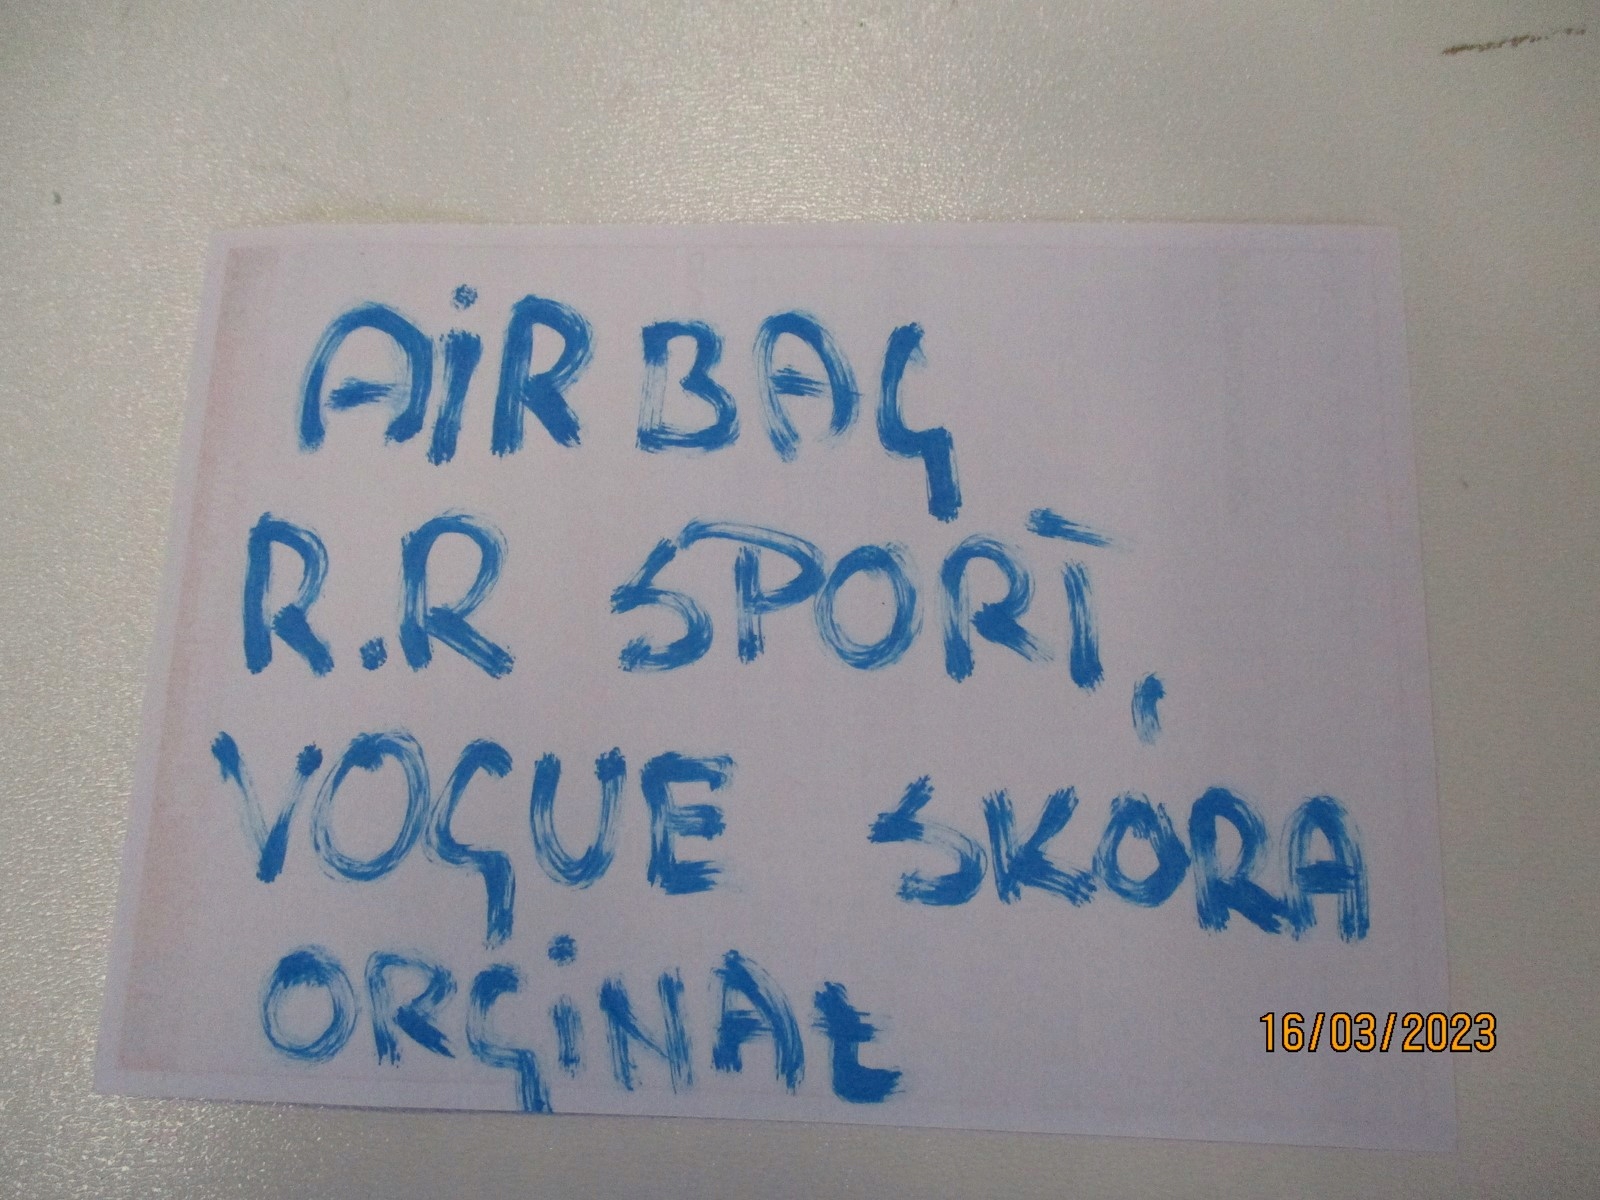 AiRBAG
R.R SPORT,
VOGUE SKORA
ORGiNAŁ
16/03/2023